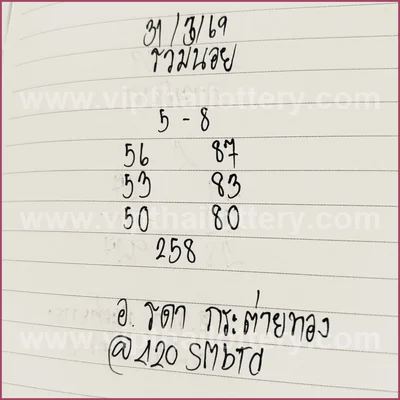 31/3/69
รวมนอย
5 - 8
56 87
53 83
50 80
258
อ. รดา กระต่ายทอง
www.vipthailottery.com
www.vipthailottery.com
www.vipthailottery.com